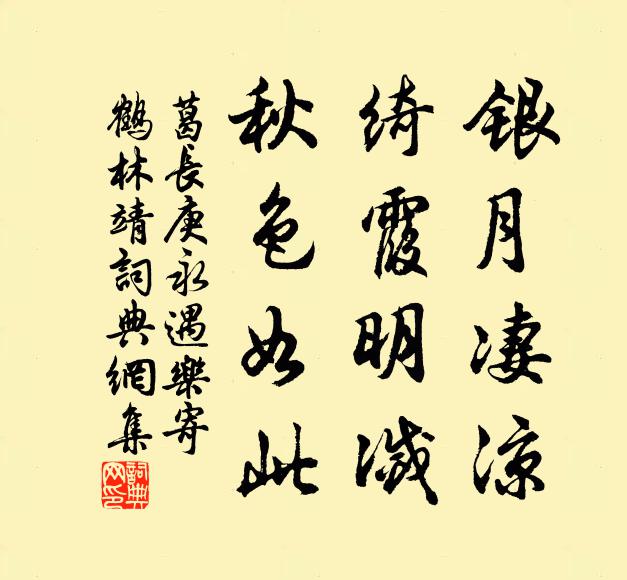 銀月凄涼
綺霞明滅
秋色如此
葛長庚永遇樂寄
鶴林靖詞典網集
詞典网印